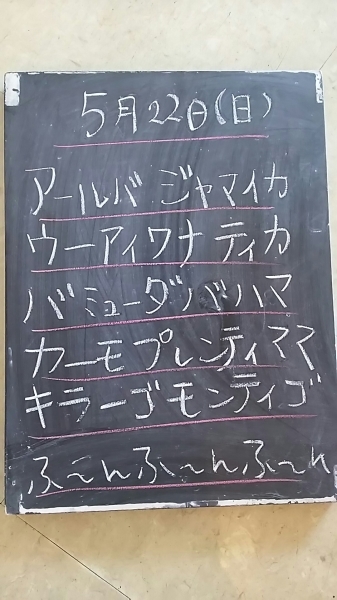 5月22日(日)
アールバ ジャマイカ
ウーアイワナ ティカ
バミューダ バハマ
カーモプレンディママ
キラーゴモンティゴ
ふ〜んふ〜んふ〜ん